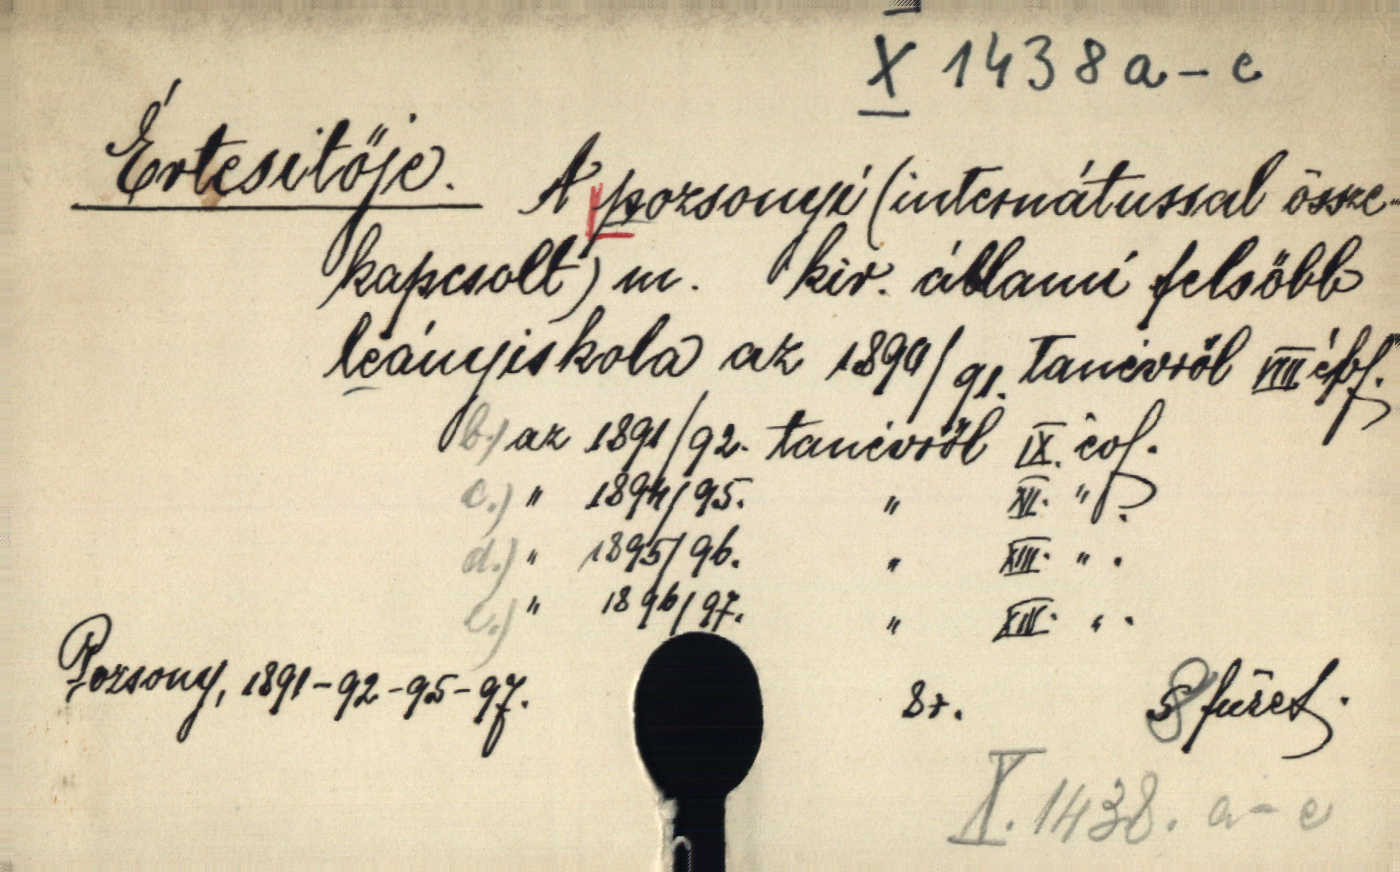 X 1438 a - e
Értesitője.
A pozsonyi (internátussal össze-
kapcsolt) m. kir. állami felsőbb
leányiskola az 1890/91. tanévről VIII évf.
b.) az 1891/92. tanévről IX. évf.
c.) " 1894/95. " XII. " .
d.) " 1895/96. " XIII. " .
e.) " 1896/97. " " .
Pozsony, 1891-92-95-97. 8r. füzet.
X. 1438. a - e